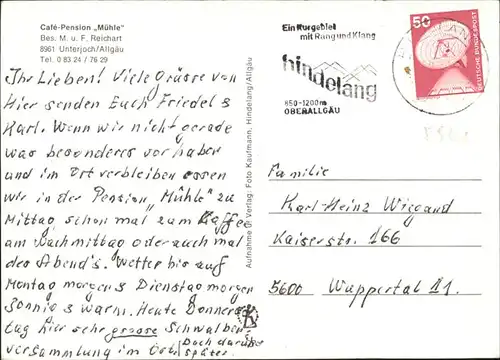 Café-Pension „Mühle"
Bes. M. u. F. Reichart
8961 Unterjoch/Allgäu
Tel. 0 83 24 / 76 29
Ihr Lieben! Viele Grüsse von
Hier senden Euch Friedel &
Karl. Wenn wir nicht gerade
was besonderes vorhaben
und im Ort verbleiben essen
wir in der Pension „Mühle" zu
Mittag schon mal zum Kaffee
am Nachmittag oder auch mal
des Abend's. Wetter bis auf
Montag morgen & Dienstag morgen
Sonnig & warm. Heute Donners
tag hier sehr grosse Schwalben
versammlung im Ort.
Doch darüber
später.
Aufnahme u. Verlag: Foto Kaufmann, Hindelang/Allgäu
Ein Kurgebiet
mit Rang und Klang
hindelang
850-1200m
OBERALLGÄU
50
DEUTSCHE BUNDESPOST
Familie
Karl-Heinz Wiegand
Kaiserstr. 166
5600 Wuppertal 11.